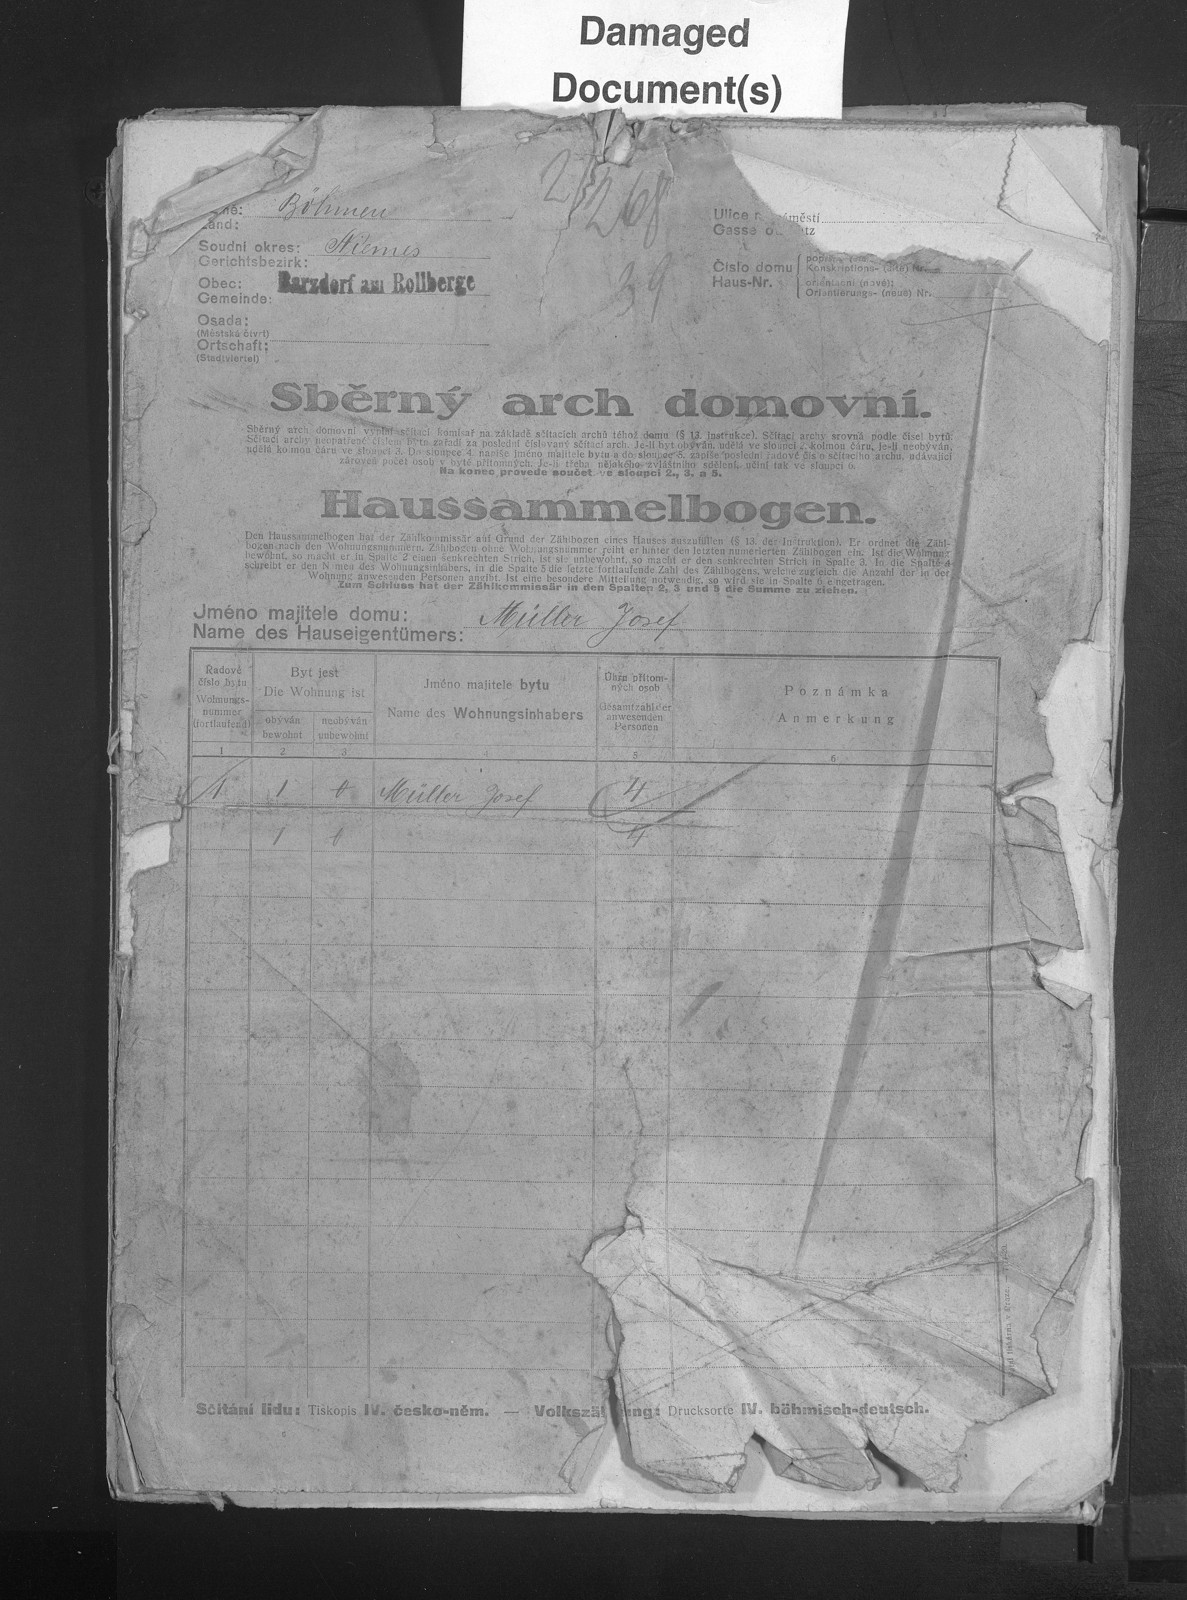 Damaged
Document(s)
268
39
Böhmen
Soudní okres: Niemes
Gerichtsbezirk:
Obec: Barzdorf am Rollberge
Gemeinde:
Osada:
(Městská čtvrť)
Ortschaft:
(Stadtviertel)
Ulice náměstí
Gasse
Číslo domu
Haus-Nr.
Konskriptions- (alte) Nr.
orientační (nové):
Orientierungs- (neue) Nr.
Sběrný arch domovní.
Sběrný arch domovní vyplní sčítací komisař na základě sčítacích archů téhož domu (§ 13. Instrukce). Sčítací archy srovná podle čísel bytů.
Sčítací archy neopatřené číslem bytu zařadí za poslední číslovaný sčítací arch. Je-li byt obýván, udělá ve sloupci 2. kolmou čáru, je-li neobýván,
udělá kolmou čáru ve sloupci 3. Do sloupce 4. napíše jméno majitele bytu a do sloupce 5. zapíše poslední řadové číslo sčítacího archu, udávající
zároveň počet osob v bytě přítomných. Je-li třeba nějakého zvláštního sdělení, učiní tak ve sloupci 6.
Na konec provede součet ve sloupci 2., 3. a 5.
Haussammelbogen.
Den Haussammelbogen hat der Zählkommissär auf Grund der Zählbogen eines Hauses auszufüllen (§ 13. der Instruktion). Er ordnet die Zähl-
bogen nach den Wohnungsnummern. Zählbogen ohne Wohnungsnummer reiht er hinter den letzten numerierten Zählbogen ein. Ist die Wohnung
bewohnt, so macht er in Spalte 2 einen senkrechten Strich, ist sie unbewohnt, so macht er den senkrechten Strich in Spalte 3. In die Spalte 4
schreibt er den Namen des Wohnungsinhabers, in die Spalte 5 die letzte fortlaufende Zahl des Zählbogens, welche zugleich die Anzahl der in der
Wohnung anwesenden Personen angibt. Ist eine besondere Mitteilung notwendig, so wird sie in Spalte 6 eingetragen.
Zum Schluss hat der Zählkommissär in den Spalten 2, 3 und 5 die Summe zu ziehen.
Jméno majitele domu: Müller Josef
Name des Hauseigentümers:
Řadové
číslo bytu
Wohnungs-
nummer
(fortlaufend)
Byt jest
Die Wohnung ist
obýván
bewohnt
neobýván
unbewohnt
Jméno majitele bytu
Name des Wohnungsinhabers
Úhrn přítom-
ných osob
Gesamtzahl der
anwesenden
Personen
Poznámka
Anmerkung
1 2 3 4 5 6
1 1 0 Müller Josef 4
1 0 4
Sčítání lidu: Tiskopis IV. česko-něm. — Volkszählung: Drucksorte IV. böhmisch-deutsch.